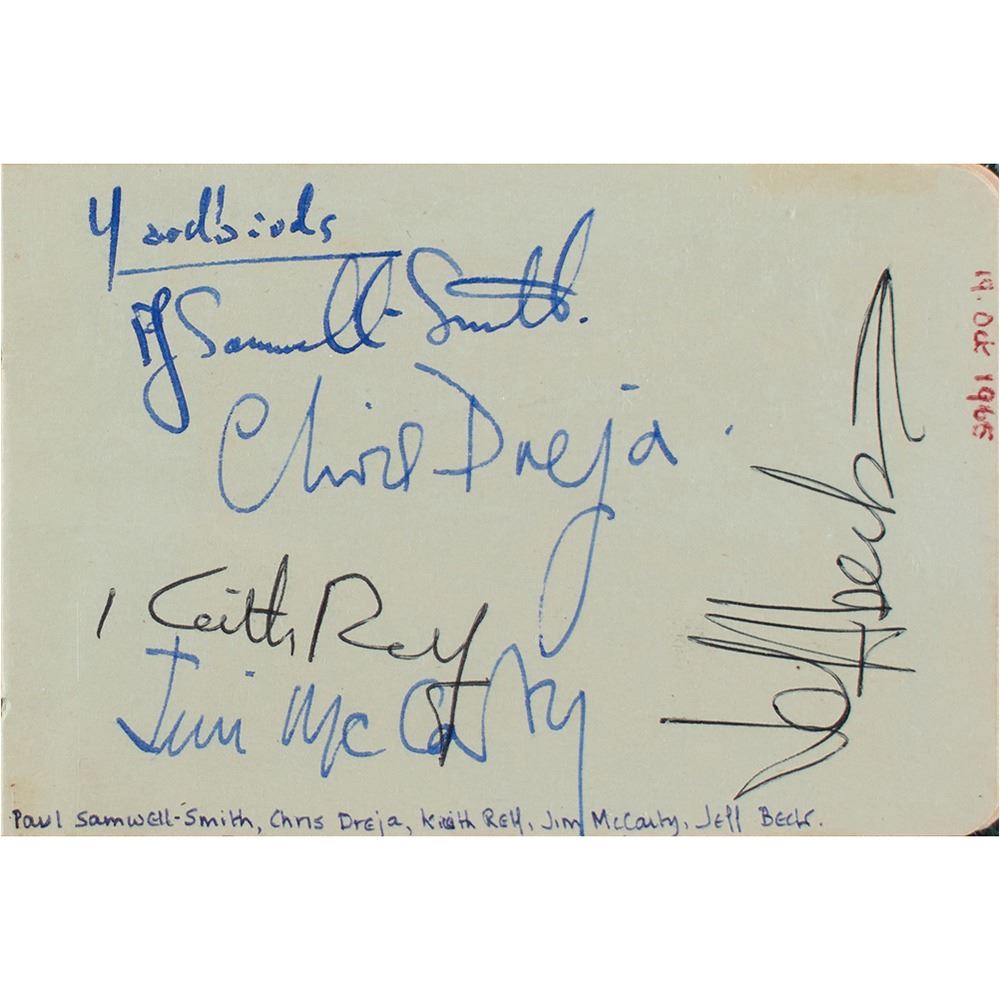 Yardbirds
PJ Samwell-Smith.
Chris Dreja.
Keith Relf
Jim McCarty
Jeff Beck
19. Oct 1965
Paul Samwell-Smith, Chris Dreja, Keith Relf, Jim McCarty, Jeff Beck.